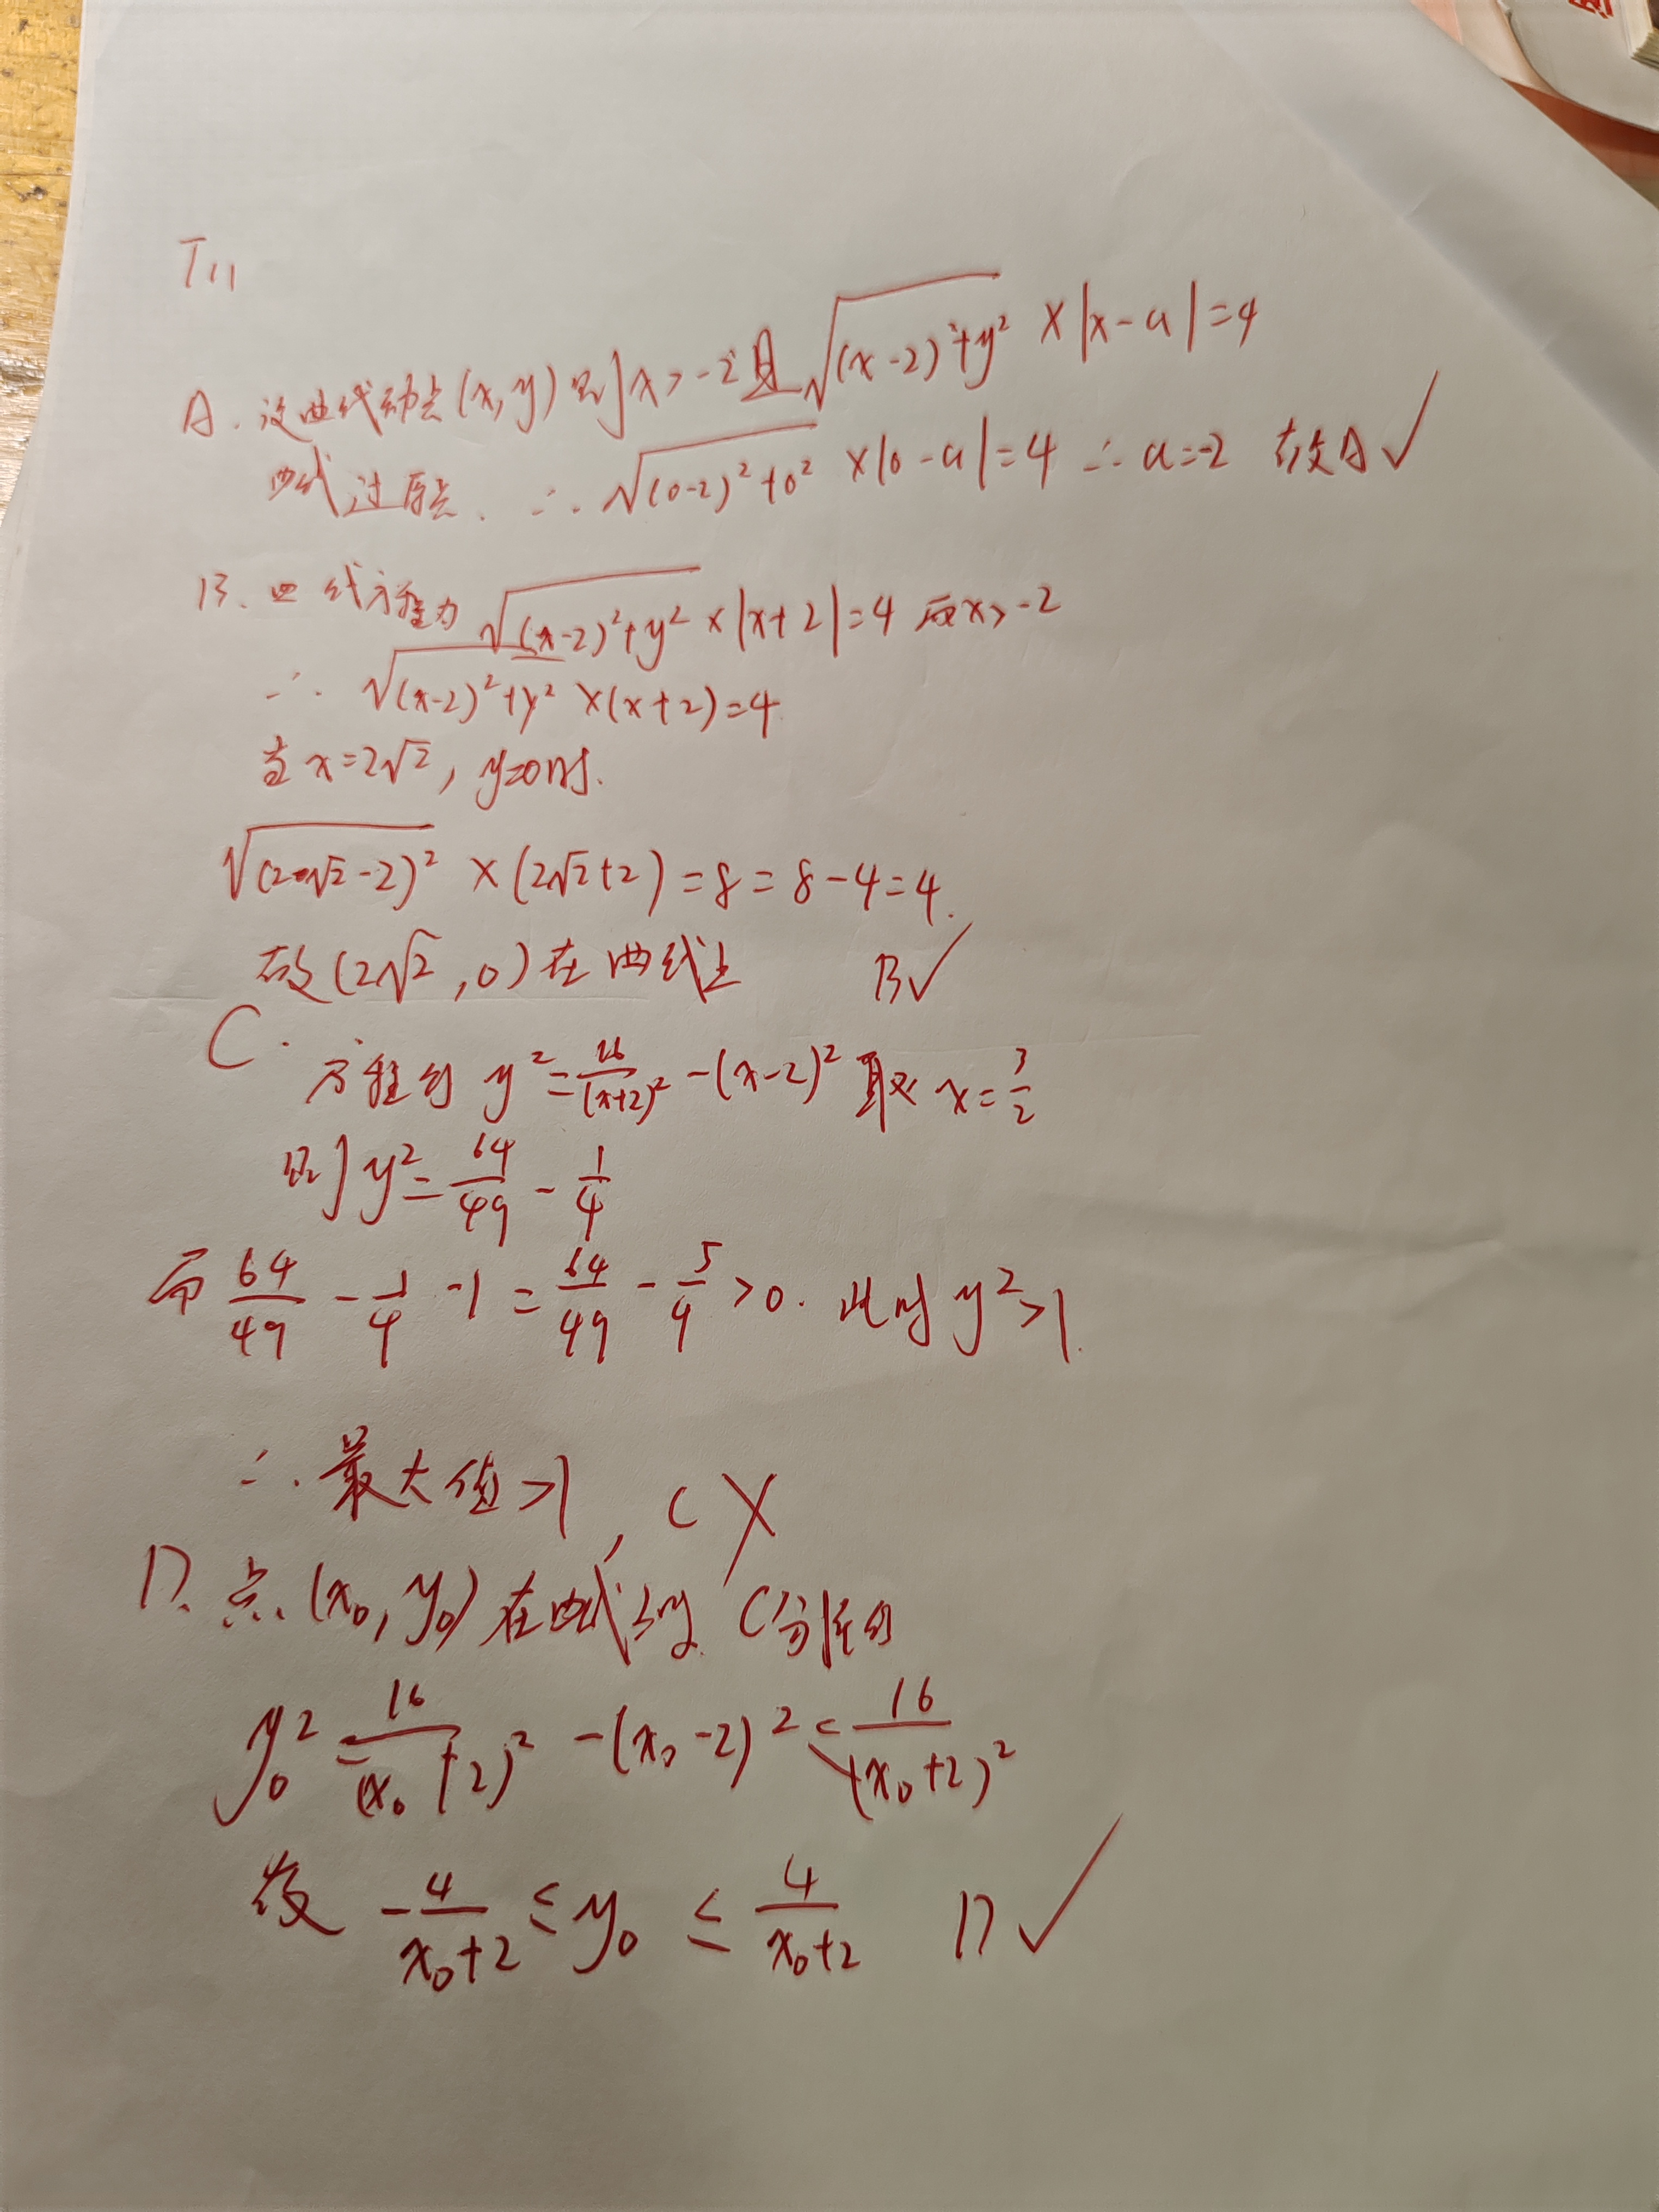 T11
A. 设曲线动点(x,y)则x>-2且√((x-2)²+y²)×|x-a|=4
曲线过原点. ∴√((0-2)²+0²)×|0-a|=4 ∴a=-2 故A✓
B. 曲线方程为√((x-2)²+y²)×|x+2|=4 而x>-2
∴√((x-2)²+y²)×(x+2)=4
当x=2√2, y=0时.
√((2√2-2)²)×(2√2+2)=8=8-4=4.
故(2√2,0)在曲线上 B✓
C. 方程的y²=16/(x+2)²-(x-2)² 取x=3/2
则y²=64/49-1/4
而64/49-1/4-1=64/49-5/4>0. 此时y²>1.
∴最大值>1, C×
D. 点(x₀,y₀)在曲线上时 C分析的
y₀²=16/(x₀+2)²-(x₀-2)²≤16/(x₀+2)²
故 -4/(x₀+2)≤y₀≤4/(x₀+2) D✓